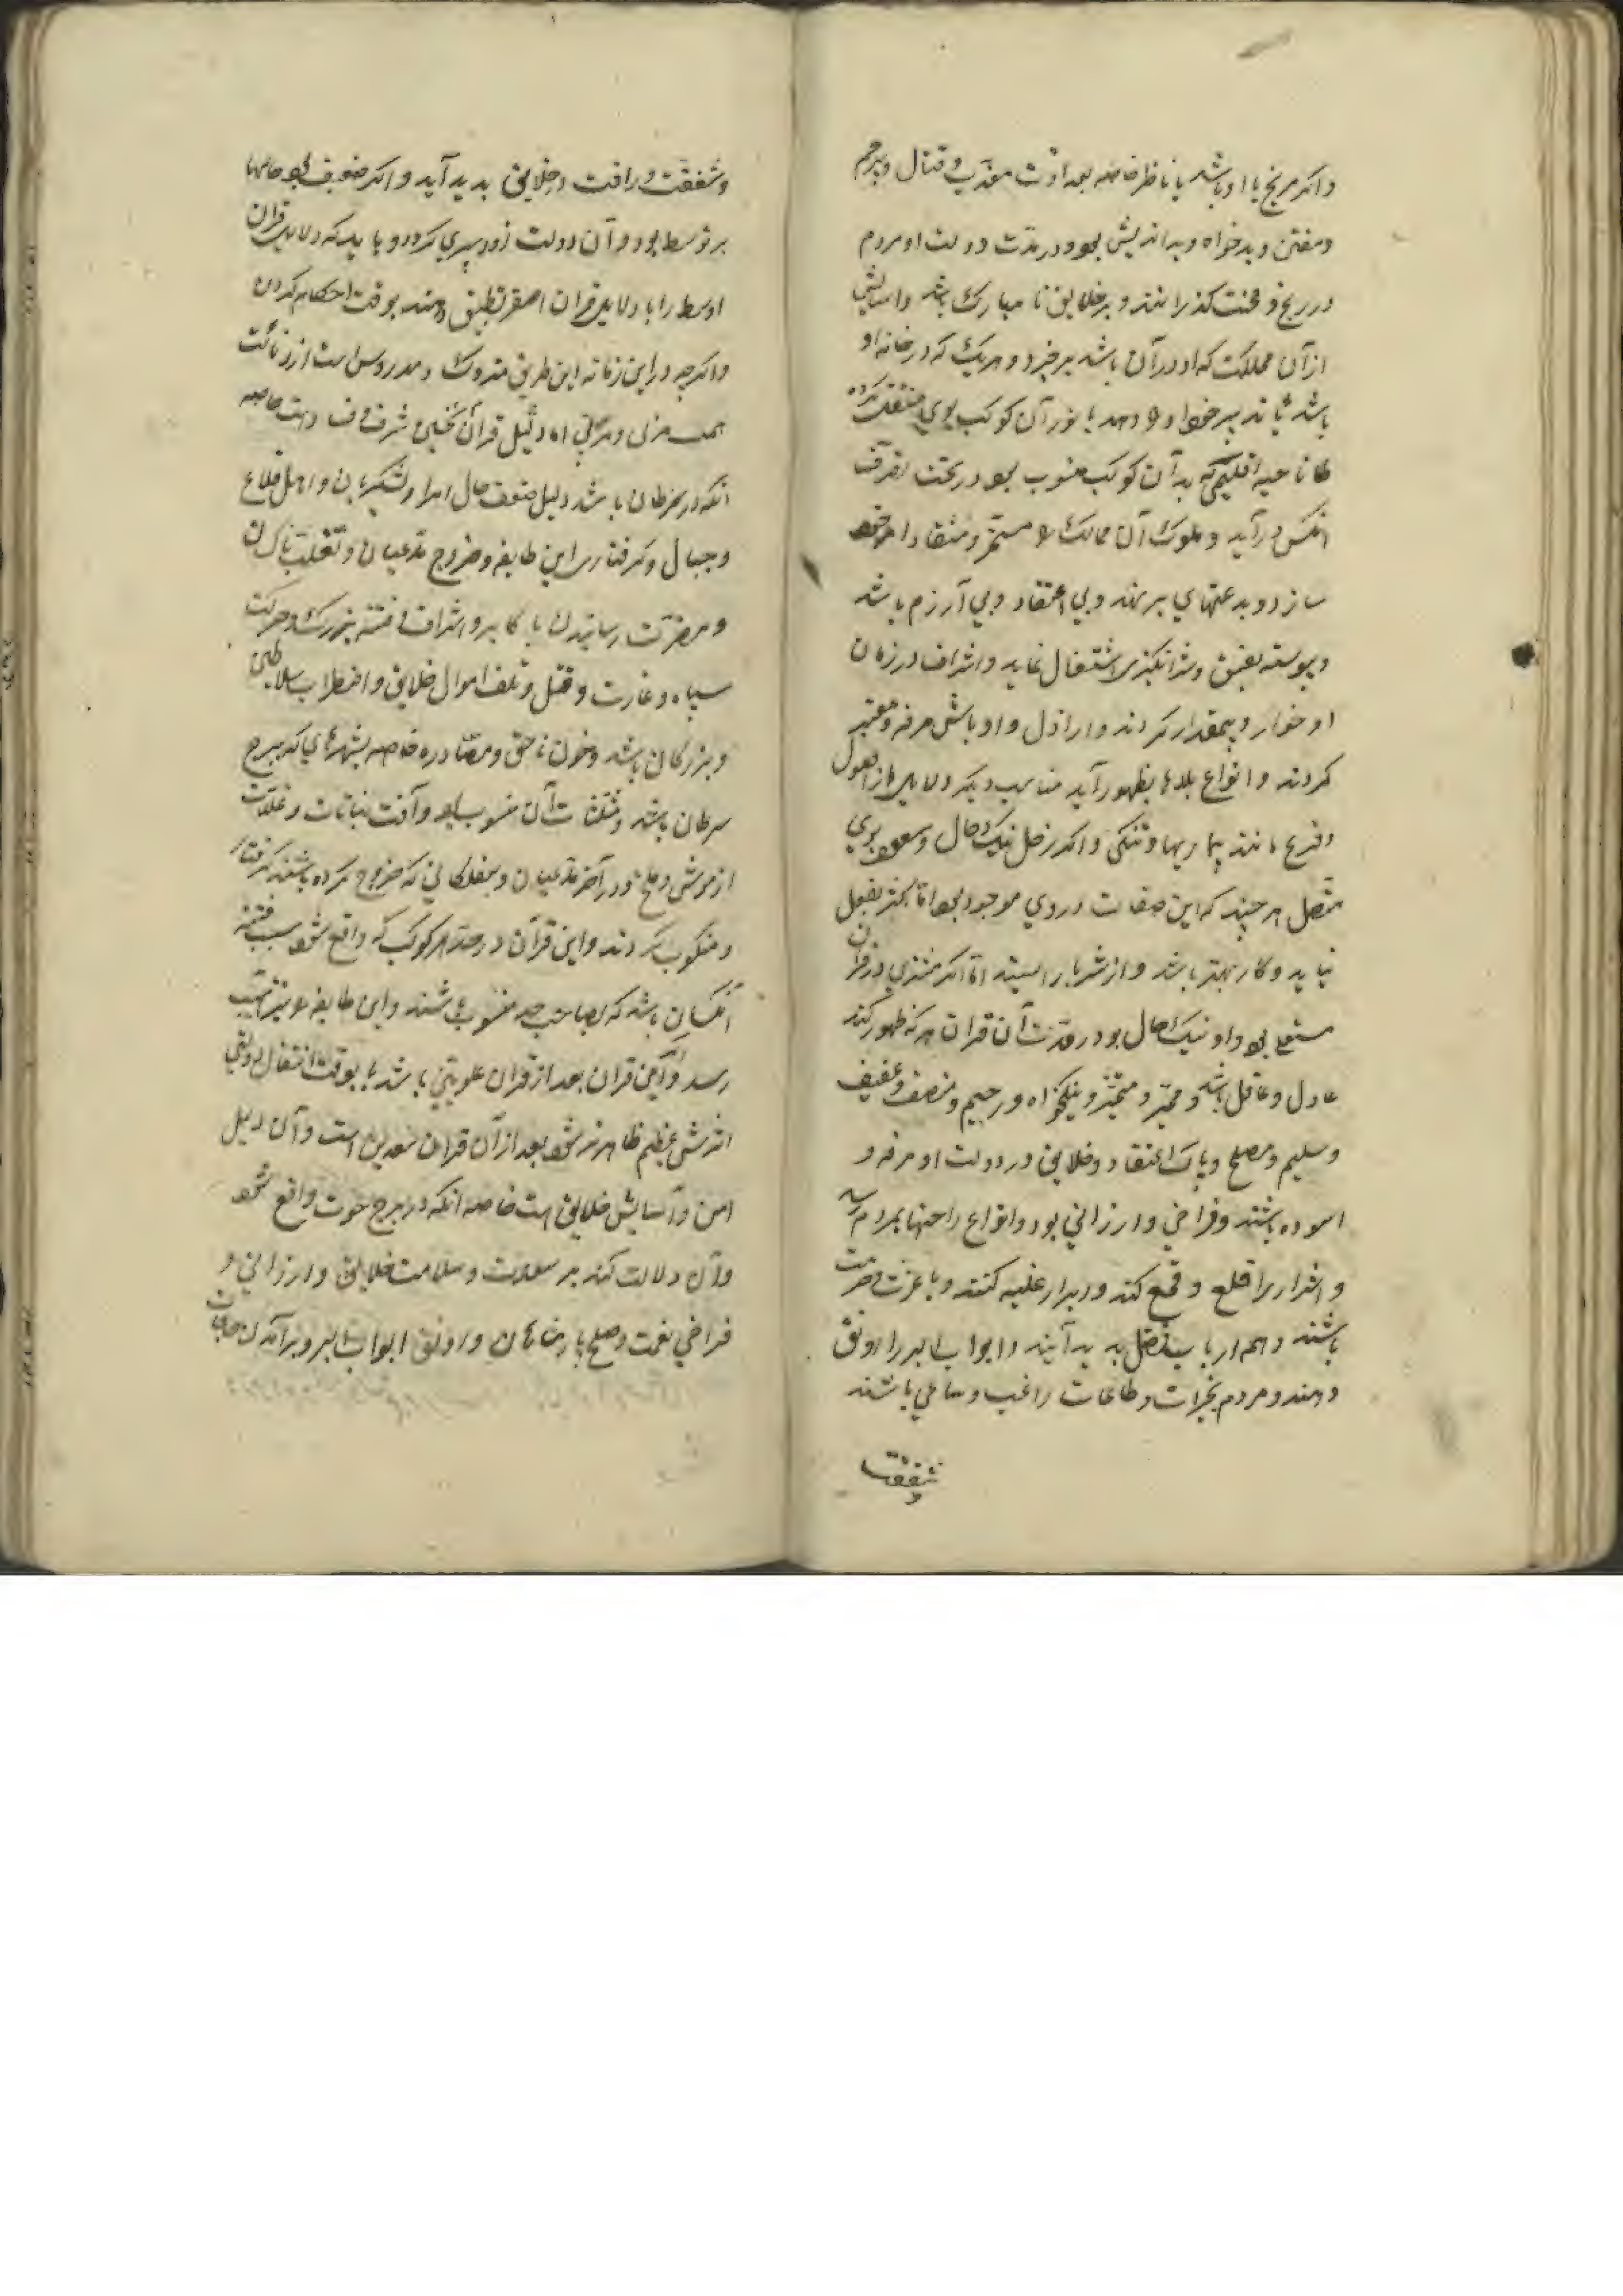 واکر مریخ با او باشد یا ناظر خاصه بعداوت معذب و قتال و بیرحم
ومفتن وبدخواه وبداندیش بود ودر مدت دولت او مردم
در رنج و محنت کذرانند و بر خلایق نا مبارک باشد واسایش
از آن مملکت که او در آن باشد برخیزد و هریک که در خانه او
باشد یا تدبیر خود او را دهد یا نور آن کوکب بوی منتقل کرده
ناحیه اقلیمی که بدآن کوکب منسوب بود در تحت تصرف
انکس در آید و ملوک آن ممالک را مسخر ومنقاد امر خود
سازد و بدعتهای بد نهد وبی اعتقاد وبی آزرم باشد
وپیوسته بفسق وشر انکیزی اشتغال نماید واشراف در زمان
او خوار و بیمقدار کردند و اراذل و اوباش مرفه و معتبر
کردند و انواع بلاها بظهور آید مناسب دیکر دلایل از اصول
وفرع مانند بیماریها وتنکی واکر زحل نیک حال ومسعود بوی
متصل هر چند که این صفات در وی موجود بود اما اکثر بفعل
نیاید و کار بهتر باشد و از شر باز ایستد اما اکر مشتری در قران
مستعلی بود و او نیک حال بود در مدت آن قران هر که ظهور کند
عادل و عاقل باشد و ممیز و نیکخواه و رحیم و منصف و عفیف
وسلیم ومصلح وپاک اعتقاد وخلایق در دولت او مرفه و
اسوده باشند وفراخی وارزانی بود وانواع راحتها بمردم رسد
و اشرار را قلع و قمع کند وابرار غلبه کنند وبا عزت وحرمت
باشند و هم ارباب فضل پدید آیند وابواب البر را رونق
دهند ومردم بخیرات وطاعات راغب وساعی باشند
وشفقت
وشفقت ورافت در خلایق پدید آید واکر ضعیف بود حالها
بر توسط بود و آن دولت زود سپری کردد و باید که دلایل قران
اوسط را با دلایل قران اصغر تطبیق دهند بوقت احکام کردن
واکرچه در این زمانه این طریق متروک ومدروس است از دنائت
همت اما دلیل قران نحسین خاصه
انکه در سرطان باشد دلیل ضعف حال امرا ولشکریان واهل قلاع
وجبال وکرفتاری این طایفه وخروج مدعیان وتغلب ناکسان
ومضرت رسانیدن باکابر واشراف وفتنه بزرک وحرکت
سپاه وغارت وقتل وتلف اموال خلایق واضطراب سلاطین
وبزرکان باشد وخون ناحق ومصادره خاصه بشهرهای که ببرج
سرطان باشد ومثلثات آن منسوب بود وآفت نباتات وغلات
از موش وملخ و در آخر مدعیان ومفلکانی که خروج کرده باشند کرفتار
ومنکوب کردند واین قران در حد هر کوکب که واقع شود سبب فتنه
آنکسان باشد که بصاحب حد منسوب باشند واین طایفه را نیز آسیب
رسد و اکر این قران بعد از قران علویین باشد یا بوقت انتقال دولتی
اثرش عظیم ظاهر تر شود بعد از آن قران سعدین است وآن دلیل
امن وآسایش خلایق است خاصه آنکه در برج حوت واقع شود
وآن دلالت کند بر سعادت وسلامت خلایق وارزانی و
فراخی نعمت وصلح پادشاهان ورونق ابواب البر وبرآمدن حاجات